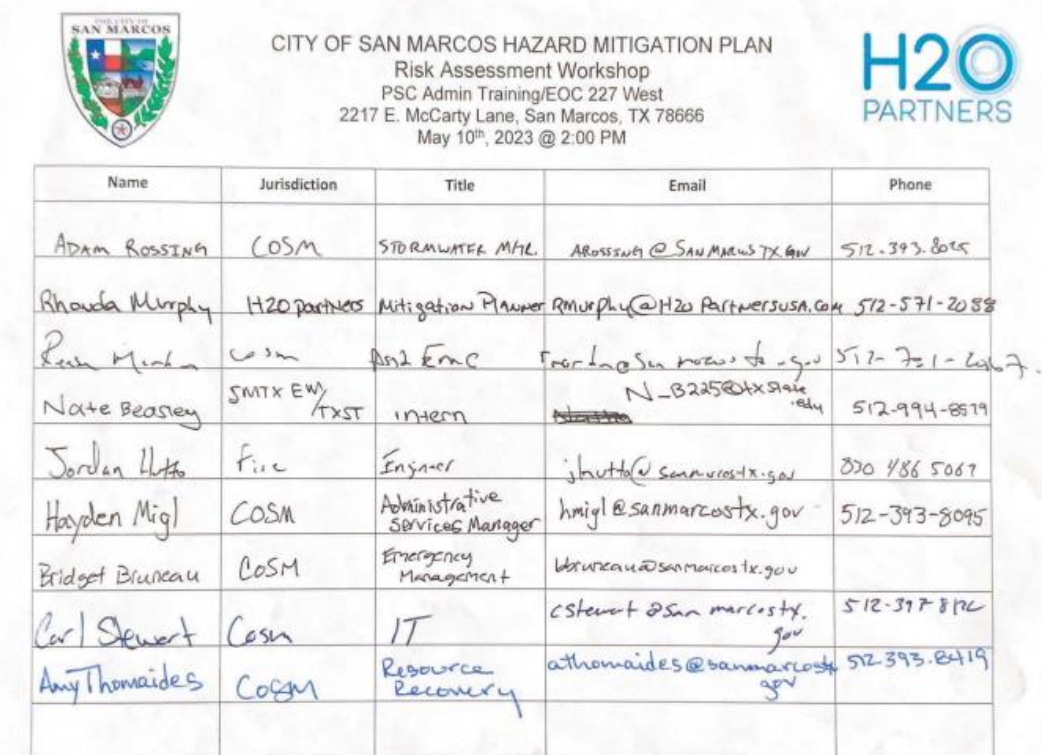 THE CITY OF
SAN MARCOS
H2O
PARTNERS
CITY OF SAN MARCOS HAZARD MITIGATION PLAN
Risk Assessment Workshop
PSC Admin Training/EOC 227 West
2217 E. McCarty Lane, San Marcos, TX 78666
May 10th, 2023 @ 2:00 PM
Name Jurisdiction Title Email Phone
ADAM ROSSING COSM STORMWATER MGR. AROSSING@SANMARCOSTX.GOV 512.393.8025
Rhonda Murphy H2O partners Mitigation Planner RMurphy@H2OPartnersusa.com 512-571-2088
cosm
Nate Beasley SMTX EM/TXST intern N_B225@txstate.edu 512-994-8579
Jordan Hutto Fire Engineer jhutto@sanmarcostx.gov 830 486 5067
Hayden Migl COSM Administrative Services Manager hmigl@sanmarcostx.gov 512-393-8095
Bridget Bruneau COSM Emergency Management bbruneau@sanmarcostx.gov
Carl Stewart Cosm IT cstewart@sanmarcostx.gov
Amy Thomaides CoSM Resource Recovery athomaides@sanmarcostx gov 512.393.8419